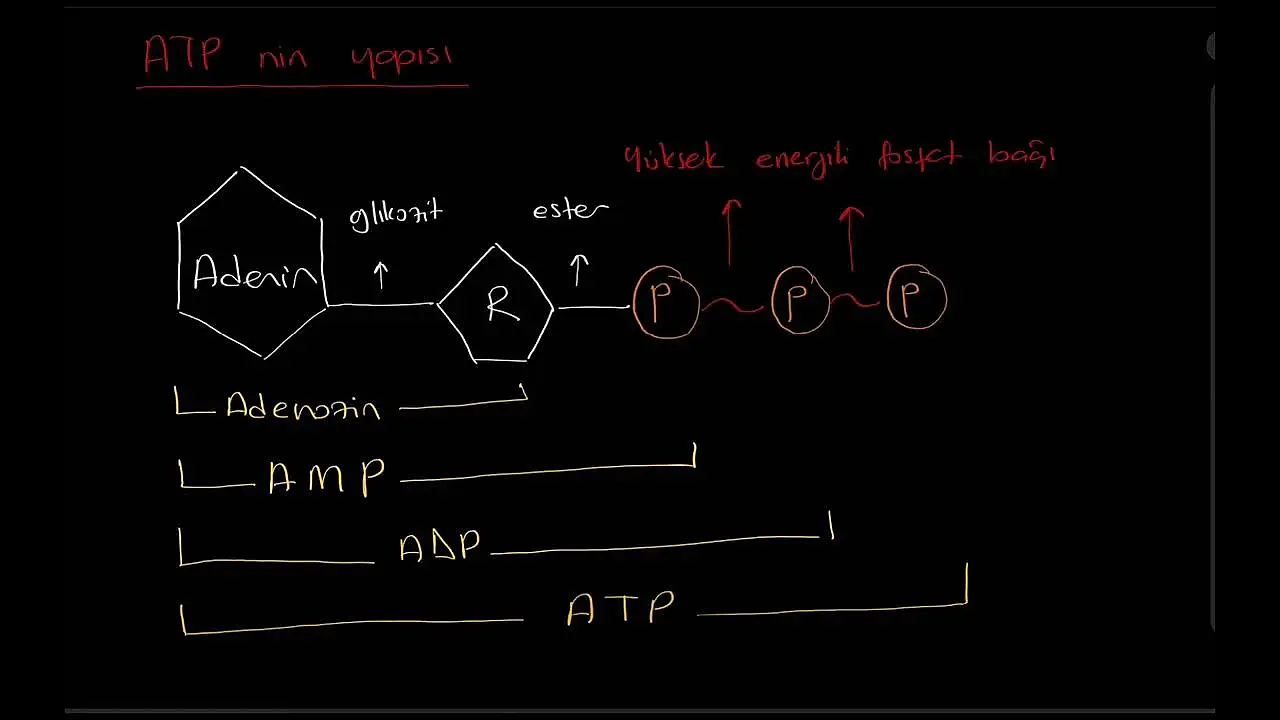 ATP nin yapısı
yüksek energili fosfat bağı
glikozit
ester
Adenin
R
P
P
P
Adenozin
AMP
ADP
ATP